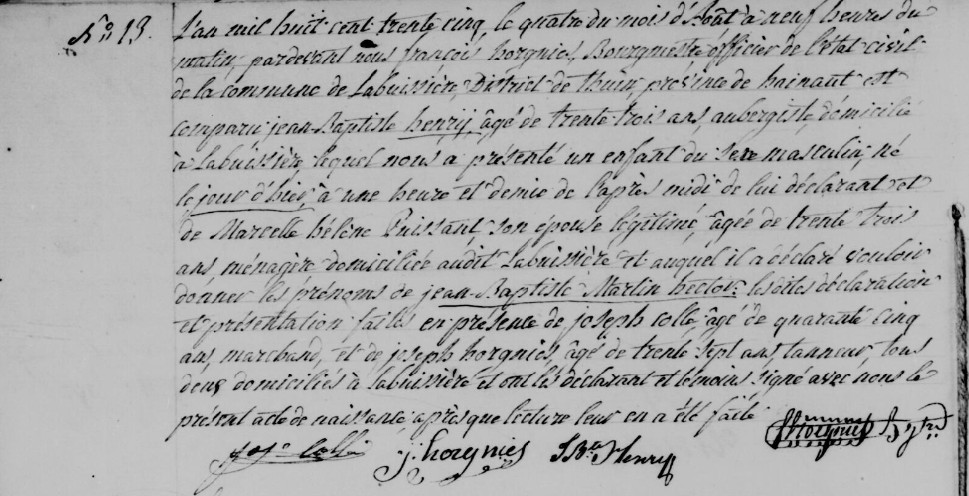 N.o 13. L'an mil huit cent trente cinq, le quatre du mois d'Août à neuf heures du
matin, pardevant nous françois horgnies, Bourgmestre officier de l'état civil
de la commune de Labuissière, District de thuin, province de hainaut est
comparu jean-Baptiste henrÿ, âgé de trente-trois ans, aubergiste, domicilié
à Labuissière, lequel nous a présenté un enfant du sexe masculin, né
le jour d'hier, à une heure et demie de l'après midi de lui déclarant et
de Marcelle hélène Puissant, son épouse légitime, âgée de trente trois
ans ménagère domiciliée audit Labuissière et auquel il a déclaré vouloir
donner les prénoms de jean-Baptiste Martin hector: les dites déclaration
et présentation faites en présence de joseph colle, âgé de quarante cinq
ans, marchand, et de joseph horgnies, âgé de trente sept ans, tanneur, tous
deux domiciliés à Labuissière et ont les déclarant et témoins signé avec nous le
présent acte de naissance, après que lecture leur en a été faite
jos colle j. horgnies J Bte henry f horgnies